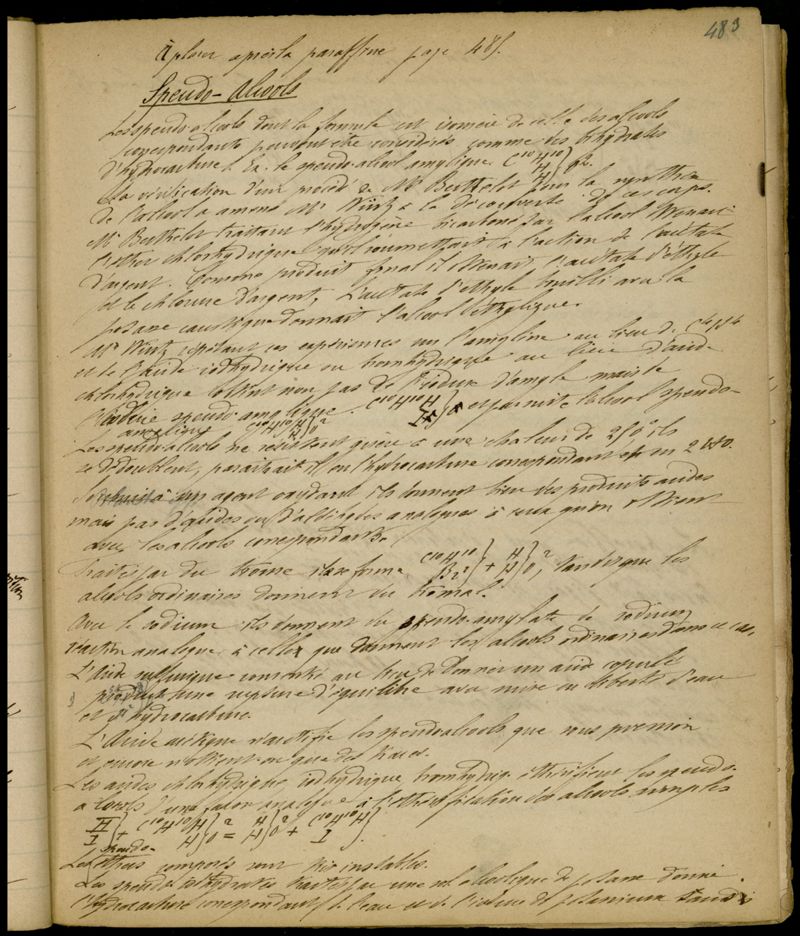 483
à placer après la paraffine page 485.
Speudo-alcools
Les speudo alcools dont la formule est isomère de celle des alcools
correspondants peuvent être considérés comme des bihydrates
d'hydrocarbure. Ex. le speudo alcool amylique C¹⁰H¹⁰ H H } O².
La vérification d'un procédé de Mr Berthelot pour la synthèse
de l'alcool a amené Mr Wurtz à la découverte de ces corps.
Mr Berthelot traitant l'hydrogène bicarboné par l'alcool
l'éther chlorhydrique qu'il soumettait à l'action de l'acétate
d'argent. Comme produit final il obtenait l'acétate d'éthyle
et le chlorure d'argent, L'acétate d'éthyle bouilli avec la
potasse caustique donnait l'alcool éthylique.
Mr Wurtz répétant ces expériences sur l'amylène au lieu de C⁴H⁴
et l'acide iodhydrique ou bromhydrique au lieu d'acide
chlorhydrique obtint non pas de l'iodure d'amyle mais le
speudo amylique. C¹⁰H¹⁰H et par suite l'alcool speudo-
amylique C¹⁰H¹⁰H H } O²
Les speudo alcools ne résistent guère à une chaleur de 250° ils
se dédoublent, paraîtrait-il en l'hydrocarbure correspondant et en 2 HO.
à un agent oxydant ils donnent lieu des produits acides
mais pas d'acides ou d'aldéhydes analogues à ceux qu'on obtient
avec les alcools correspondants.
Traités par du brome il se forme C¹⁰H¹⁰ Br² } + H H } O², tandis que les
alcools ordinaires donnent du bromal.
Avec le sodium ils donnent du speudo-amylate de sodium
réaction analogue à celle que donnent les alcools ordinaires dans ce cas.
L'acide sulfurique concentré au lieu de donner un acide copulé
produit une rupture d'équilibre avec mise en liberté d'eau
et d'hydrocarbure.
L'acide acétique n'éthérifie les speudo alcools que sous pression
et encore n'obtient-on que des traces.
Les acides chlorhydrique iodhydrique bromhydrique éthérifient les speudo
alcools d'une façon analogue à l'éthérification des alcools simples
H I } + C¹⁰H¹⁰H H } O² = H H } O² + C¹⁰H¹⁰H I }.
Les speudo-éthers composés sont très instables.
Les speudo iodhydrates traités par une sol alcoolique de potasse donne
l'hydrocarbure correspondant, de l'eau et de l'iodure de potassium tandis